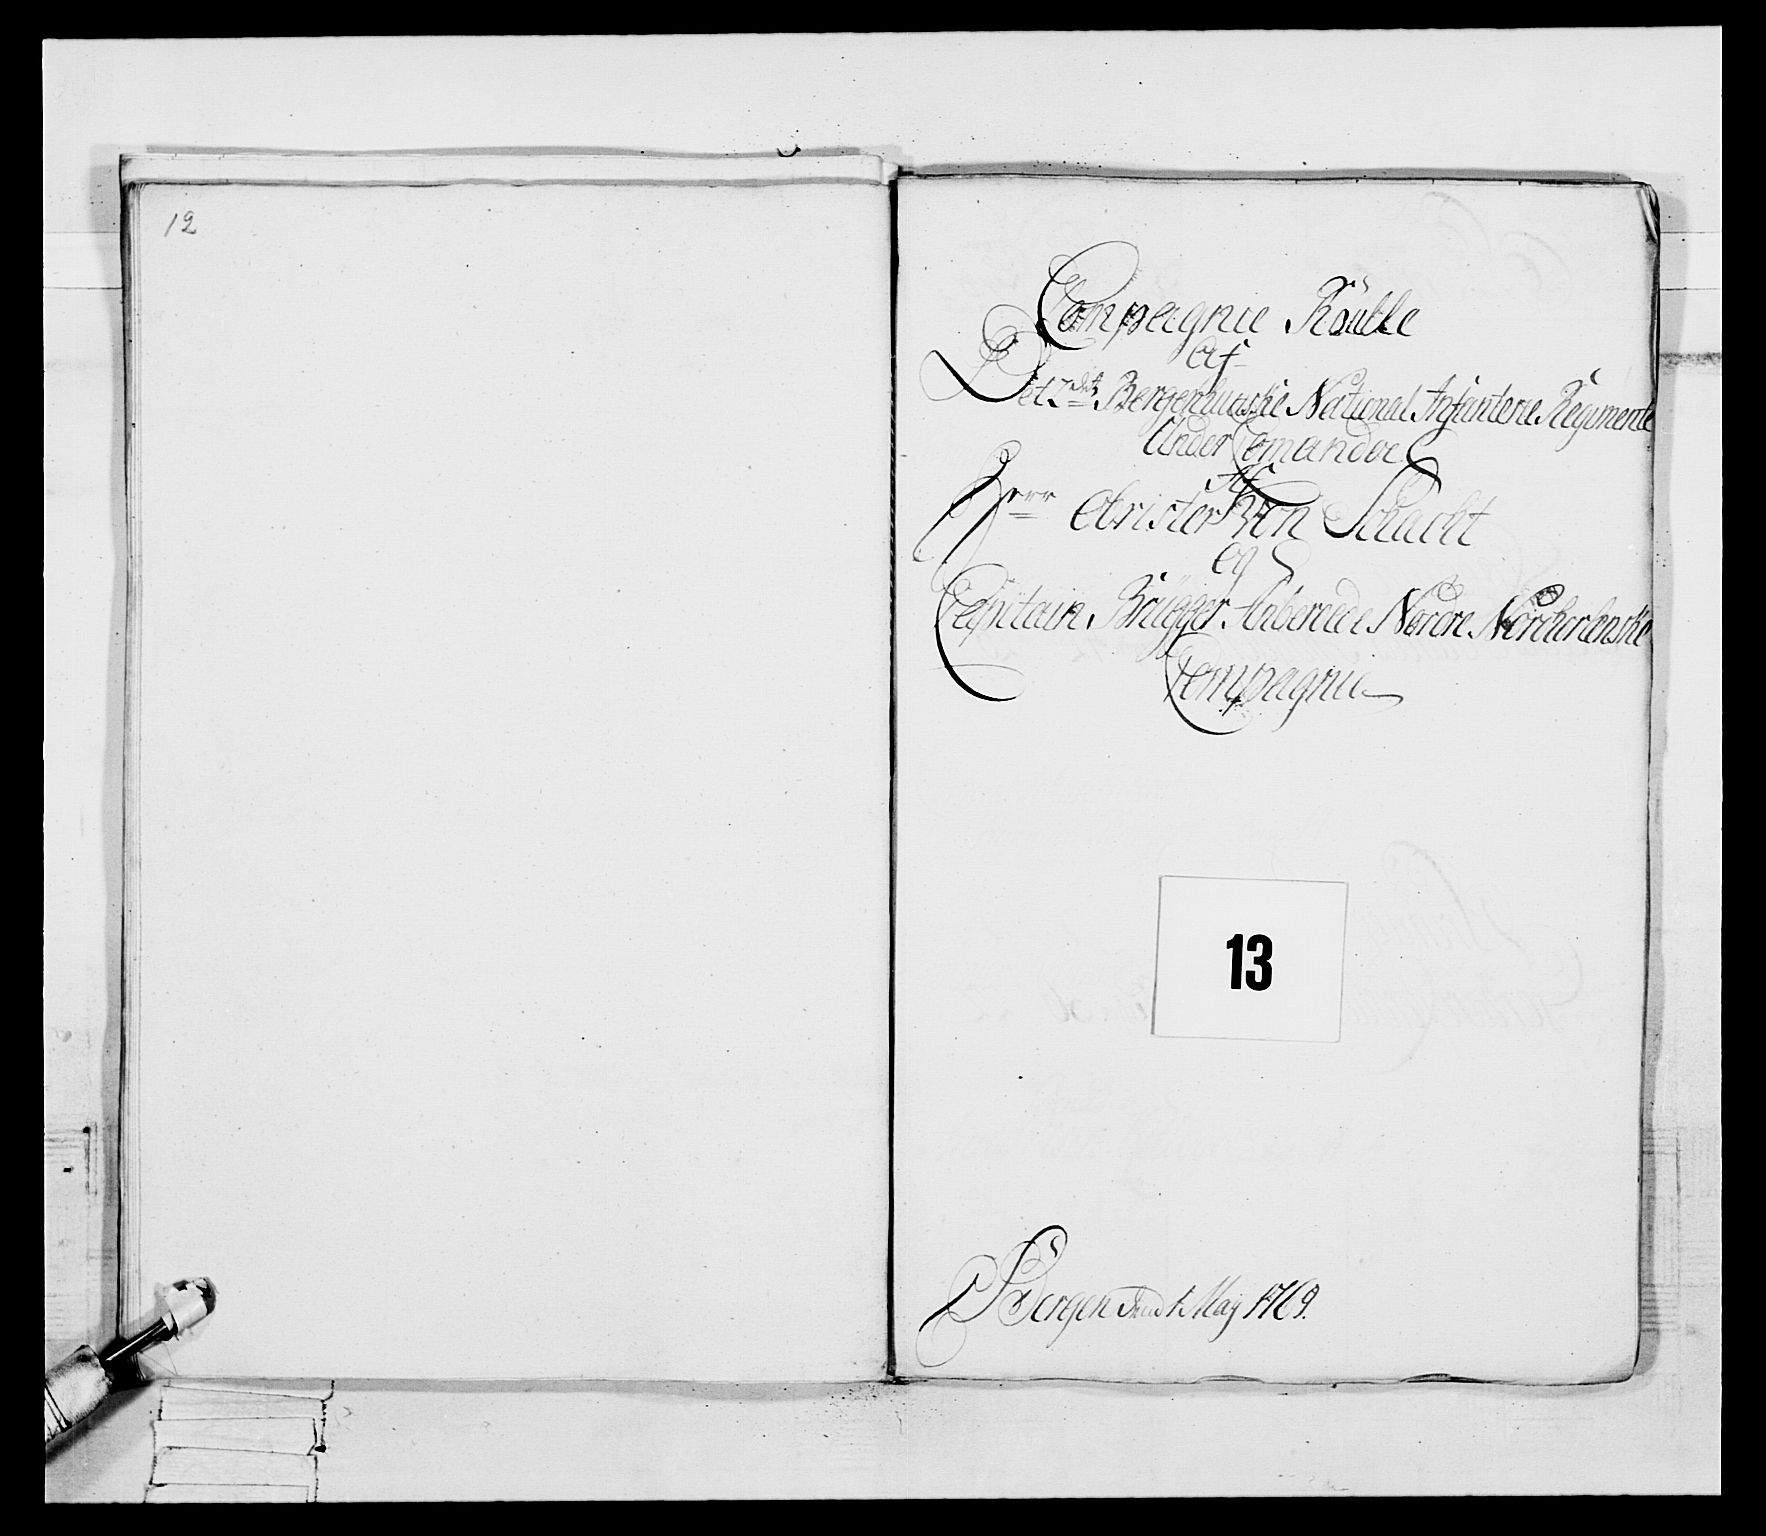 12
Compagnie Roulle
af
Det 2det Bergenhuuske National Infanterie Regimente
Under Comando
Af
Herr Obrister Von Schacht
og
Capitain Brügger Anberoede Nordre Nordhorlenske
Compagnie
13
Bergen Den 1 Maÿ 1769.